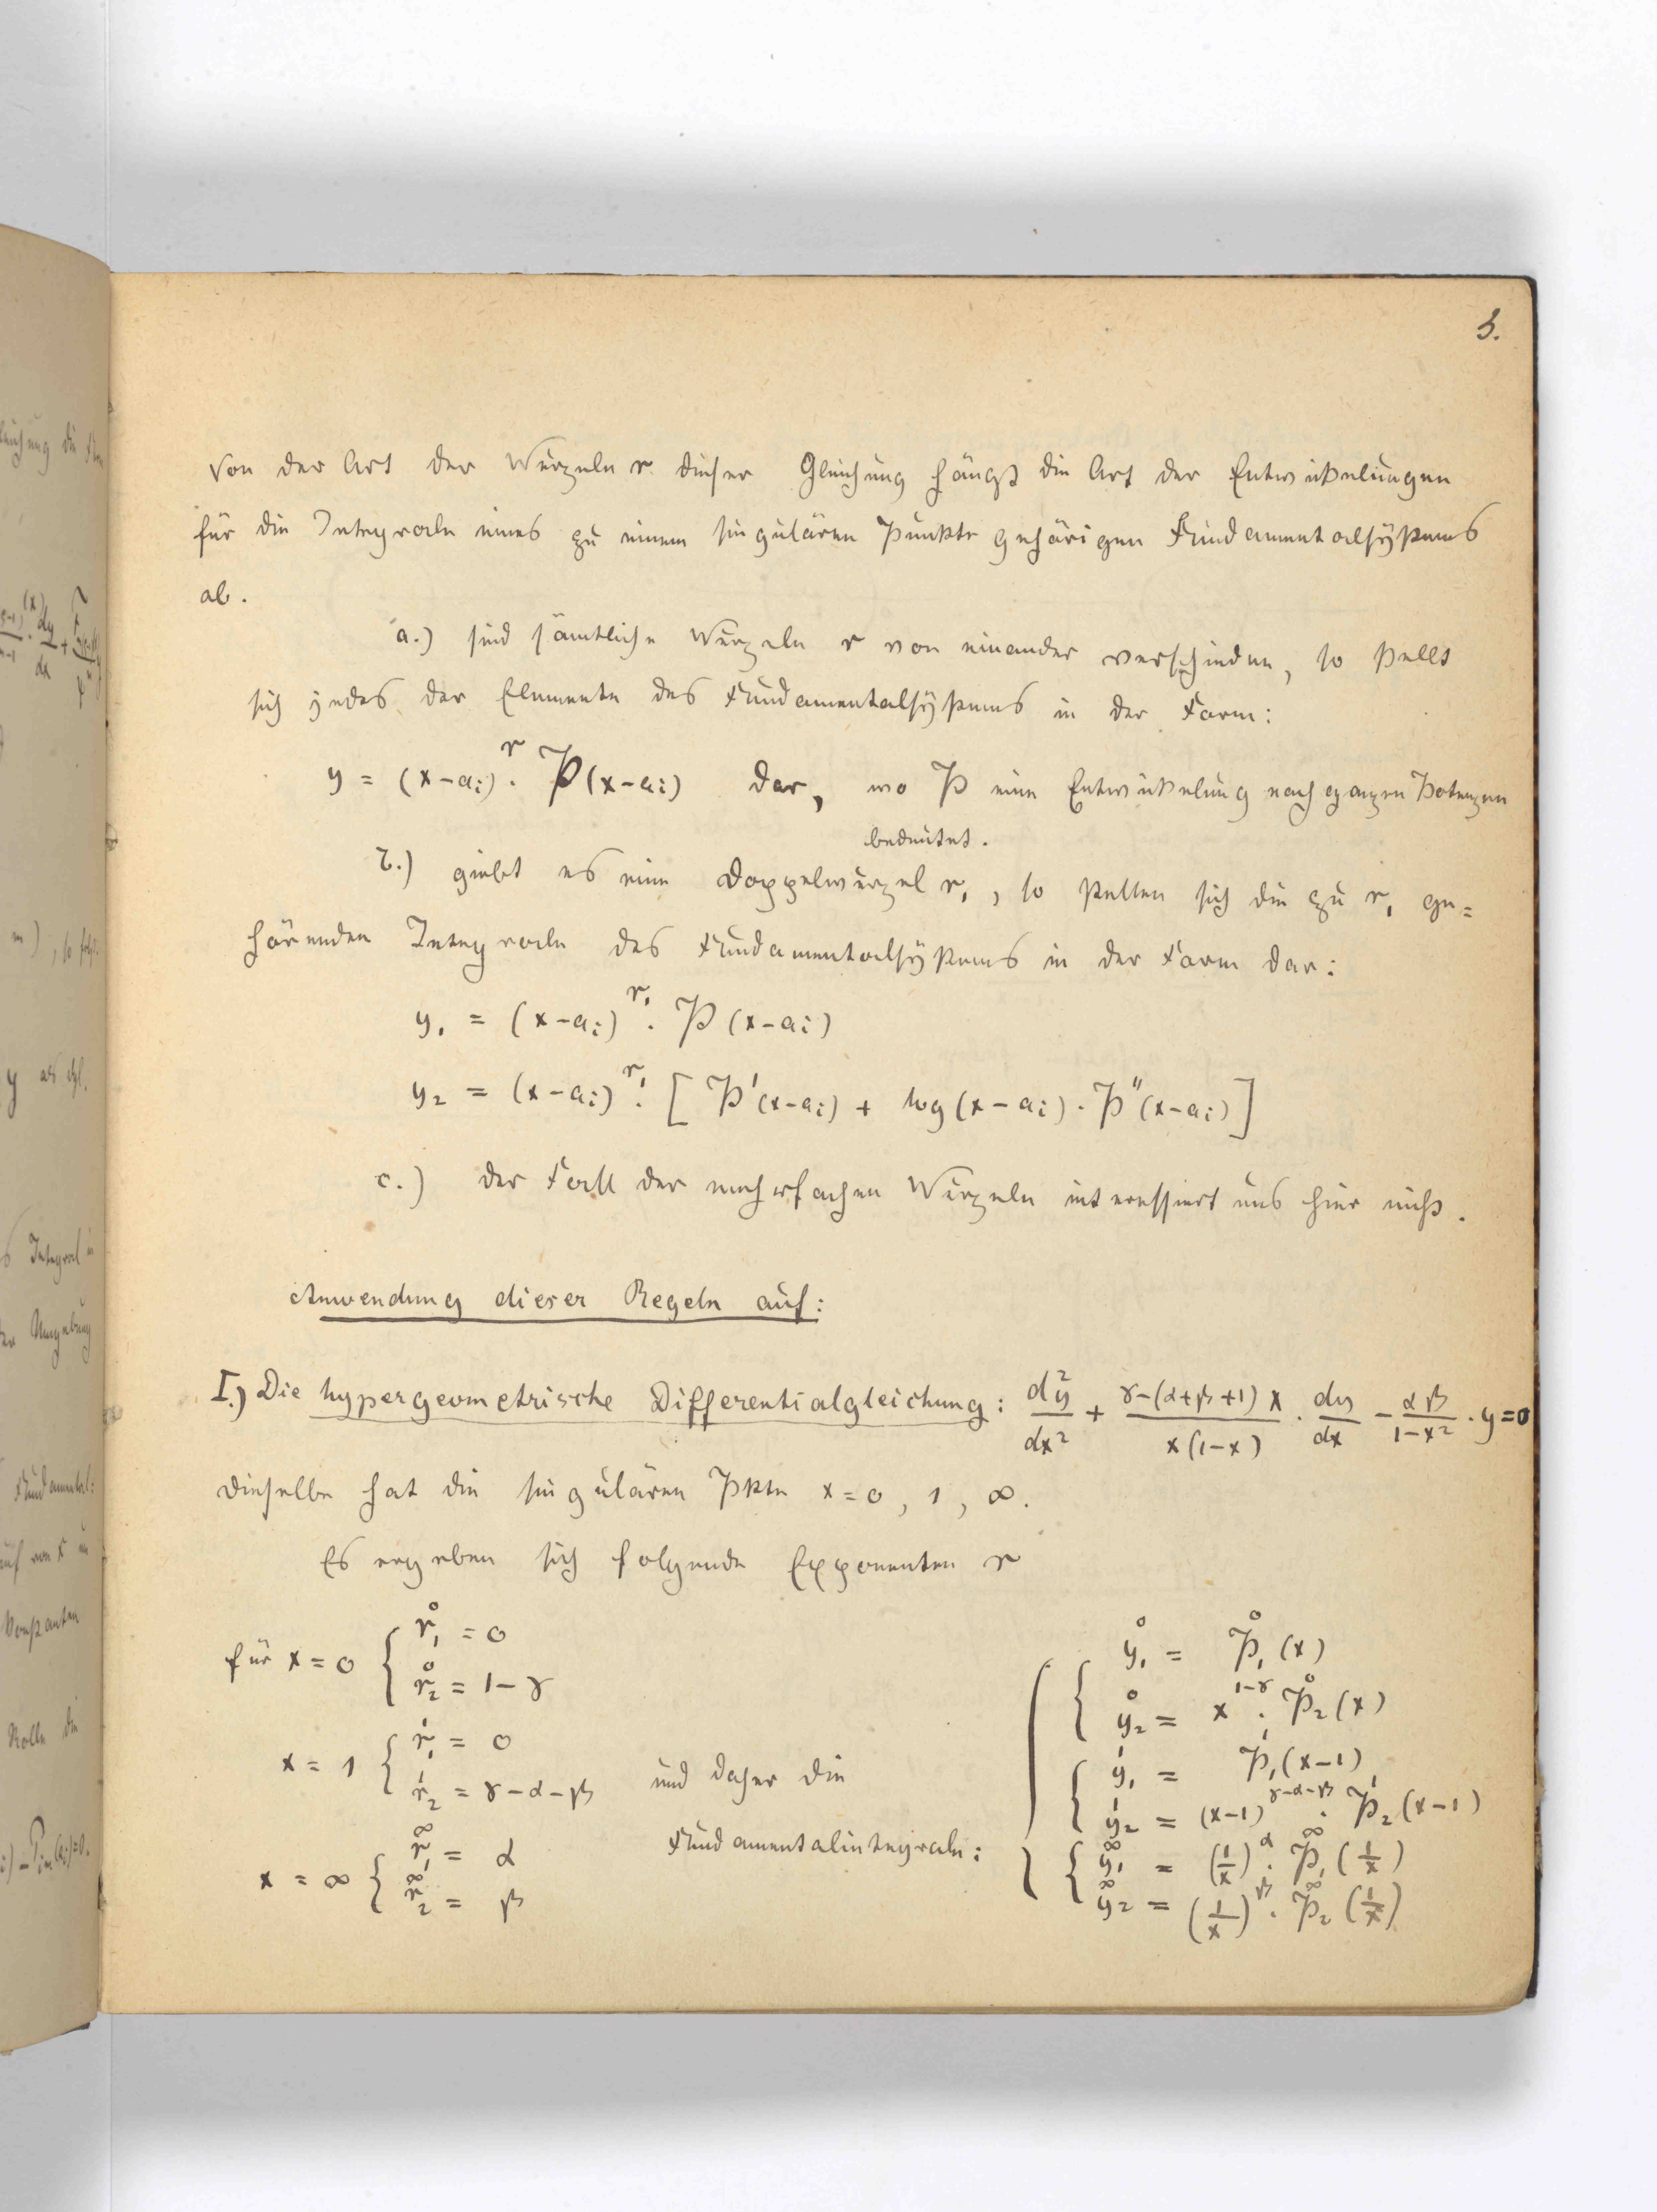 3.
Von der Art der Wurzeln r dieser Gleichung hängt die Art der Entwickelungen
für die Integrale eines zu einem singulären Punkte gehörigen Fundamentalsystems
ab.
a.) sind sämtliche Wurzeln r von einander verschieden, so stellt
sich jedes der Elemente des Fundamentalsystems in der Form:
y = (x-a_i)^r · P(x-a_i) dar, wo P eine Entwickelung nach ganzen Potenzen
bedeutet.
b.) giebt es eine Doppelwurzel r_1, so stellen sich die zu r_1 ge=
hörenden Integrale des Fundamentalsystems in der Form dar:
y_1 = (x-a_i)^{r_1} · P(x-a_i)
y_2 = (x-a_i)^{r_1} · [P'(x-a_i) + log(x-a_i) · P''(x-a_i)]
c.) der Fall der mehrfachen Wurzeln interessiert uns hier nicht.
Anwendung dieser Regeln auf:
I.) Die hypergeometrische Differentialgleichung: d²y/dx² + (γ-(α+β+1)x)/(x(1-x)) · dy/dx - αβ/(1-x²) · y = 0
dieselbe hat die singulären Pkte x=0, 1, ∞.
Es ergeben sich folgende Exponenten r
für x=0 { r_1^0 = 0
r_2^0 = 1-γ
x=1 { r_1^1 = 0
r_2^1 = γ-α-β
x=∞ { r_1^∞ = α
r_2^∞ = β
und daher die
Fundamentalintegrale:
y_1^0 = P_1^0(x)
y_2^0 = x^{1-γ} · P_2^0(x)
y_1^1 = P_1^1(x-1)
y_2^1 = (x-1)^{γ-α-β} · P_2^1(x-1)
y_1^∞ = (1/x)^α · P_1^∞(1/x)
y_2^∞ = (1/x)^β · P_2^∞(1/x)